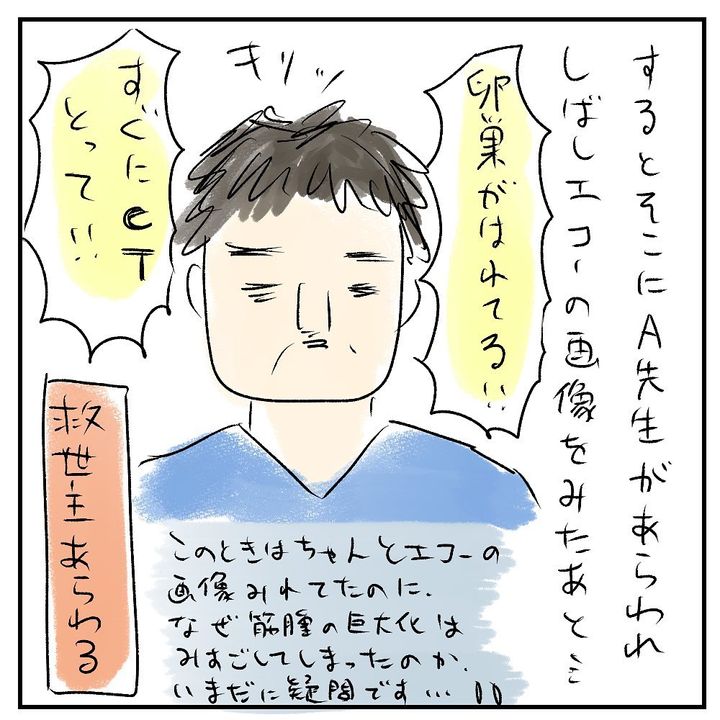 するとそこにA先生があらわれ
しばしエコーの画像をみたあと…
卵巣がはれてる!!
キリッ
すぐにCT
とって!!
救世主あらわる
このときはちゃんとエコーの
画像みれてたのに、
なぜ筋腫の巨大化は
みすごしてしまったのか、
いまだに疑問です…